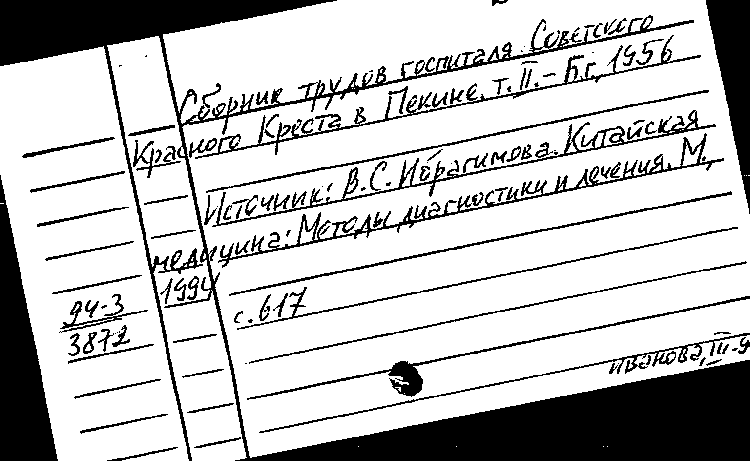 Сборник трудов госпиталя Советского
Красного Креста в Пекине. т. II. – Б.г., 1956
Источник: В.С. Ибрагимова. Китайская
медицина: Методы диагностики и лечения. М.,
1994
с. 617
94-3
3872
Иванова, III-9